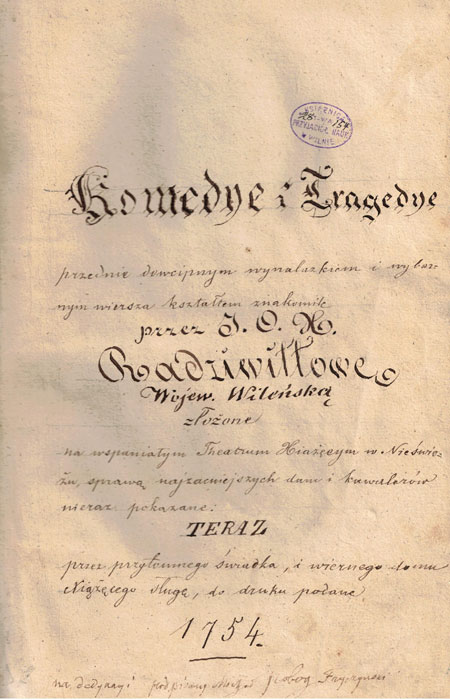 KSIĄŻNICA
PRZYJACIÓŁ NAUK
W WILNIE
Komedye i Tragedye
przednie dowcipnym wynalazkiem i wybor-
nym wiersza kształtem znakomite
przez J. O. X.
Radziwiłłowę
Wojew. Wileńską
złożone
na wspaniałym Theatrum Xiążęcym w Nieświe-
żu, sprawą najzacniejszych dam i kawalerów
nieraz pokazane:
TERAZ
przez przytomnego świadka, i wiernego domu
Xiążęcego sługę, do druku podane
1754.
na dedykacyi podpisany